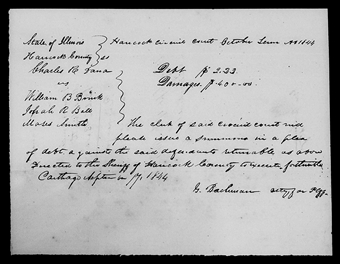 State of Illinois } Hancock circuit court October Term AD 1844
Hancock County } ss
Charles R Dana
vs
Debt $ 2.33
Damages. $ 400.00
William B
Josiah R Ball
Moses Smith
The clerk of said circuit court will
please issue a summons in a plea
of debt against the said defendants returnable as above
Directed to the Sheriff of Hancock County to execute
Carthage 17, 1844
G. Bachman atty for Plff.